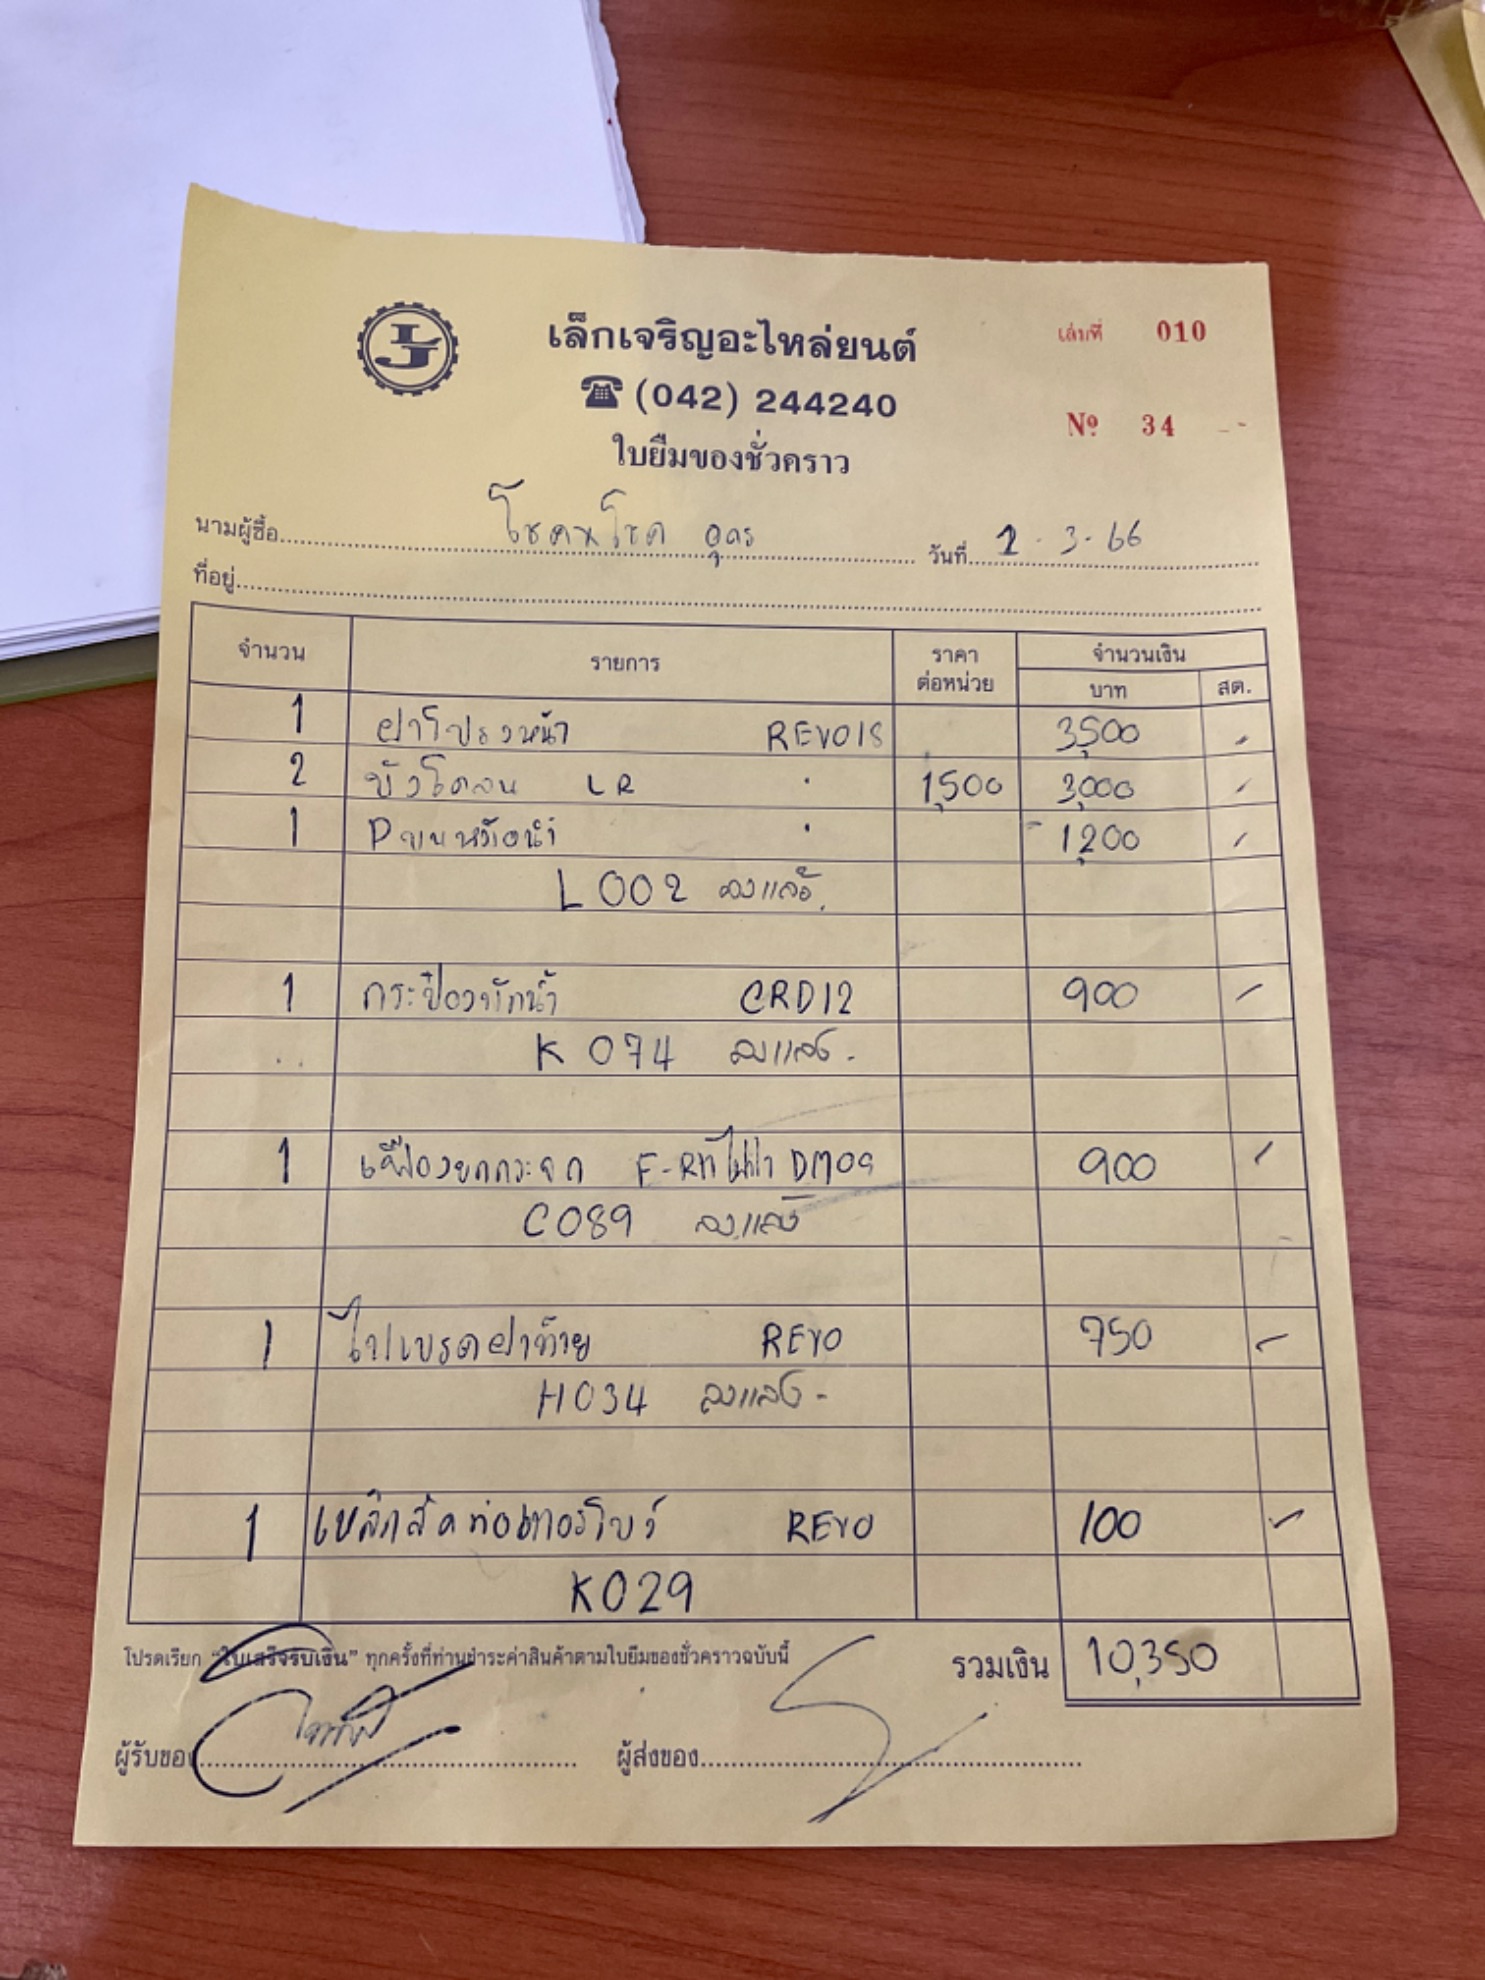 เล็กเจริญอะไหล่ยนต์
เล่มที่ 010
☎ (042) 244240
Nº 34
ใบยืมของชั่วคราว
นามผู้ซื้อ โชคนำโชค อุดร วันที่ 2-3-66
ที่อยู่
จำนวน รายการ ราคาต่อหน่วย จำนวนเงิน
บาท สต.
1 ฝาโปรงหน้า REVO15 3,500 -
2 บังโคลน LR " 1,500 3,000 -
1 " 1,200 -
L002 ลงแล้ว
1 กระป๋องพักน้ำ CRD12 900 -
K074 ลงแล้ว -
1 เฟืองยกกระจก F-R ไฟฟ้า DM09 900 -
C089 ลงแล้ว
1 ไฟเบรคฝาท้าย REVO 750 -
H034 ลงแล้ว -
1 เหล็กรัดท่อเทอร์โบว์ REVO 100 -
K029
โปรดเรียก "ใบเสร็จรับเงิน" ทุกครั้งที่ท่านชำระค่าสินค้าตามใบยืมของชั่วคราวฉบับนี้ รวมเงิน 10,350
ผู้รับของ ผู้ส่งของ